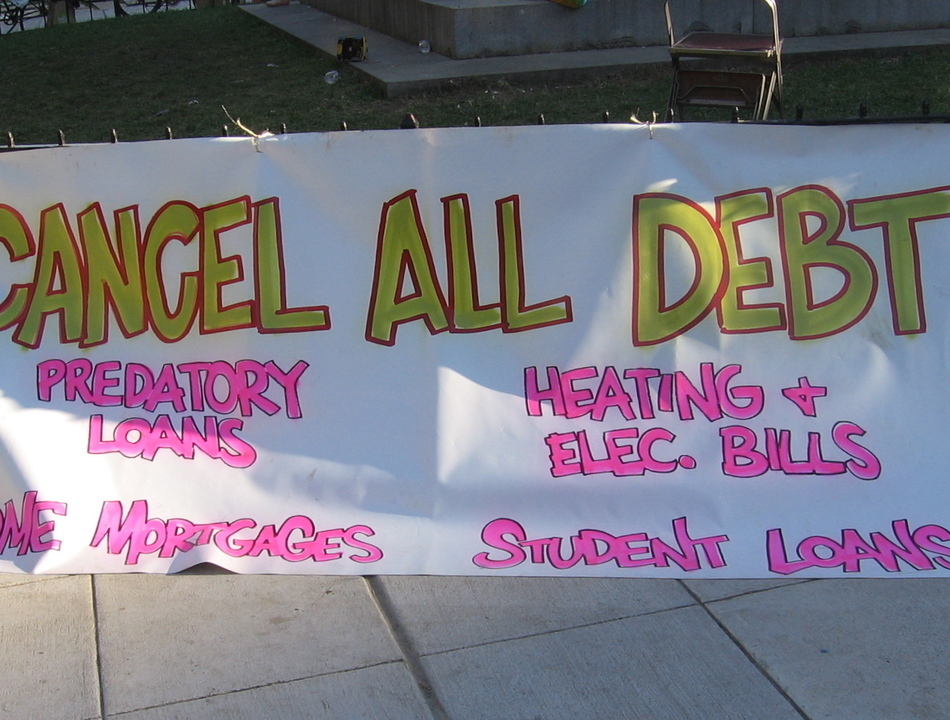 CANCEL ALL DEBT
PREDATORY
LOANS
HEATING +
ELEC. BILLS
OME MORTGAGES
STUDENT LOANS